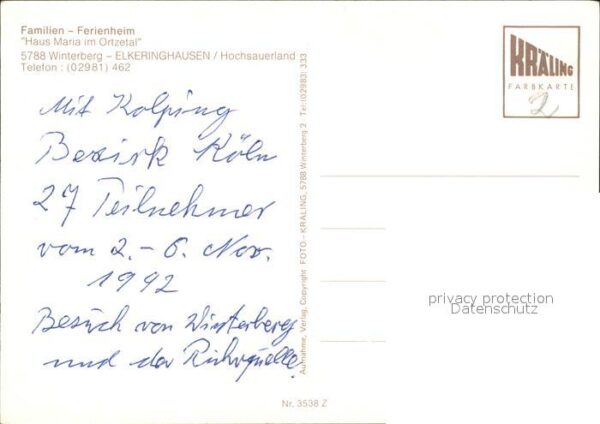 Familien – Ferienheim
"Haus Maria im Ortzetal"
5788 Winterberg – ELKERINGHAUSEN / Hochsauerland
Telefon : (02981) 462
Mit Kolping
Bezirk Köln
27 Teilnehmer
vom 2. – 6. Nov.
1992
Besuch von Winterberg
und der Ruhrquelle
Aufnahme, Verlag, Copyright FOTO – KRÄLING, 5788 Winterberg 2 Tel: (02983) 333
KRÄLING
FARBKARTE
2
privacy protection
Datenschutz
Nr. 3538 Z